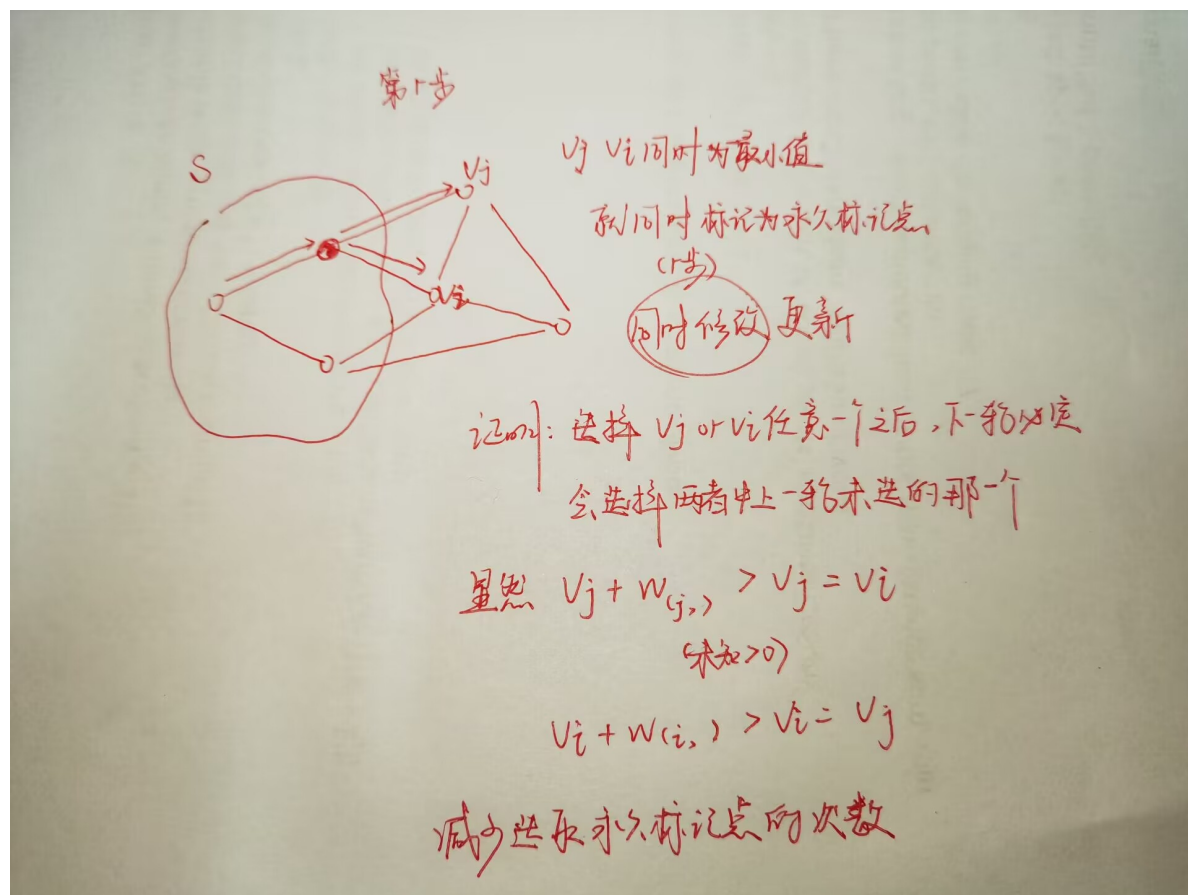 第r步
S
Vj
Vj Vi同时为最小值
就同时标记为永久标记点
(r步)
Vi
同时修改更新
证明:选择 Vj or Vi任意一个之后,下一轮必定
会选择两者中上一轮未选的那一个
显然 Vj + W(j,) > Vj = Vi
>0)
Vi + W(i,) > Vi = Vj
减少选取永久标记点的次数